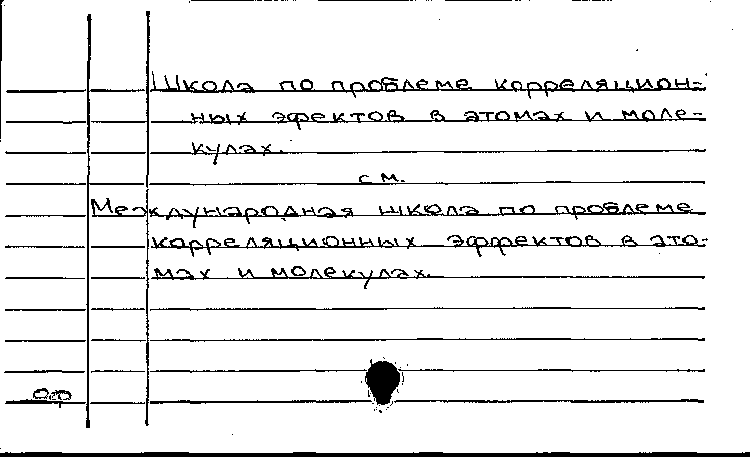 Школа по проблеме корреляцион-
ных эфектов в атомах и моле-
кулах.
см.
Международная школа по проблеме
корреляционных эффектов в ато-
мах и молекулах.